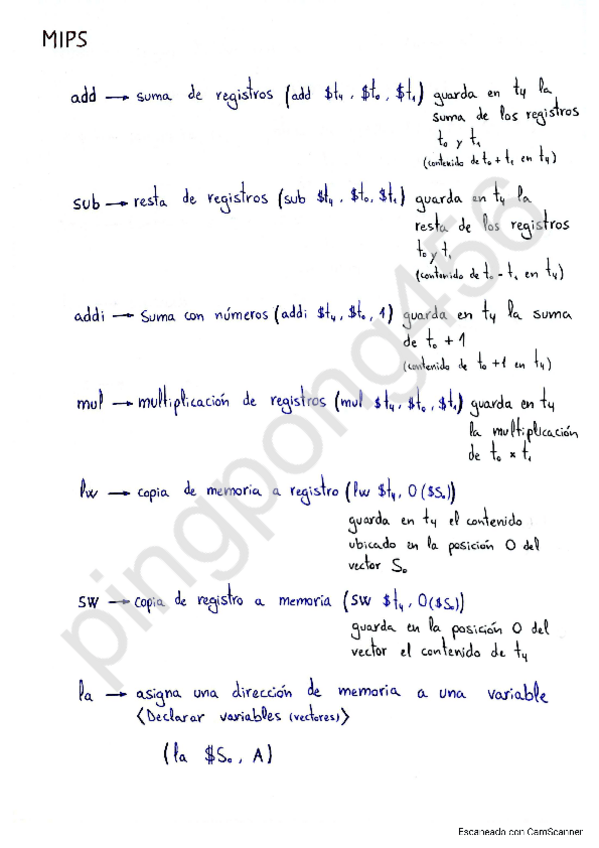 MIPS
add → suma de registros (add $t4, $t0, $t1) guarda en t4 la
suma de los registros
t0 y t1
(contenido de t0 + t1 en t4)
sub → resta de registros (sub $t4, $t0, $t1) guarda en t4 la
resta de los registros
t0 y t1
(contenido de t0 - t1 en t4)
addi → Suma con números (addi $t4, $t0, 1) guarda en t4 la suma
de t0 + 1
(contenido de t0 + 1 en t4)
mul → multiplicación de registros (mul $t4, $t0, $t1) guarda en t4
la multiplicación
de t0 × t1
lw → copia de memoria a registro (lw $t4, 0($S0))
guarda en t4 el contenido
ubicado en la posición 0 del
vector S0
sw → copia de registro a memoria (sw $t4, 0($S0))
guarda en la posición 0 del
vector el contenido de t4
la → asigna una dirección de memoria a una variable
<Declarar variables (vectores)>
(la $S0, A)
pingpong456
Escaneado con CamScanner